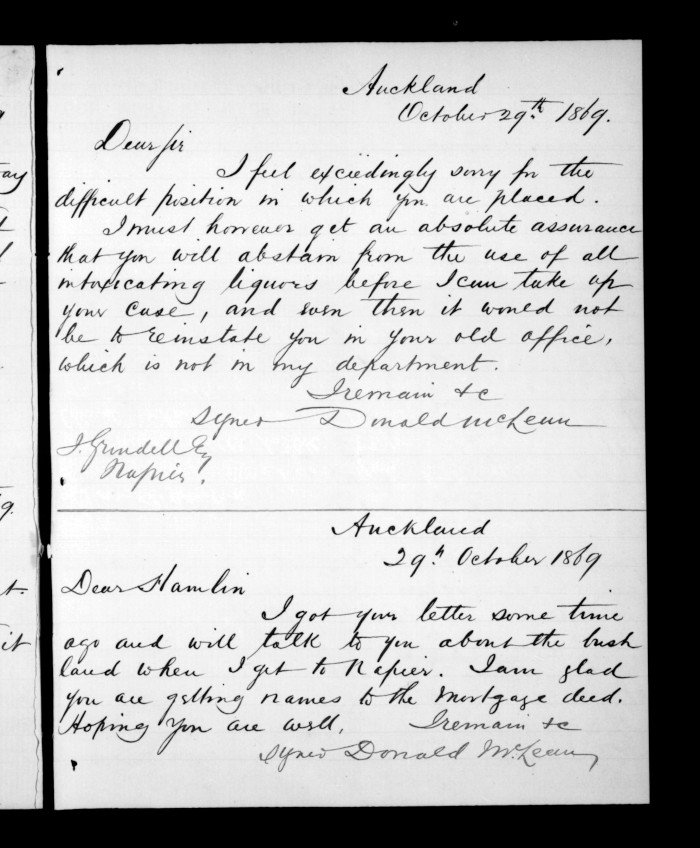 Auckland
October 29th. 1869.
Dear Sir
I feel exceedingly sorry for the
difficult position in which you are placed.
I must however get an absolute assurance
that you will abstain from the use of all
intoxicating liquors before I can take up
your case, and even then it would not
be to reinstate you in your old office,
which is not in my department.
I remain &c
Signed Donald McLean
J. Grindell Esq
Napier.
Auckland
29th October 1869
Dear Hamlin
I got your letter some time
ago and will talk to you about the bush
land when I get to Napier. I am glad
you are getting names to the Mortgage deed.
Hoping you are well, I remain &c
Signed Donald McLean
9.
t.
it